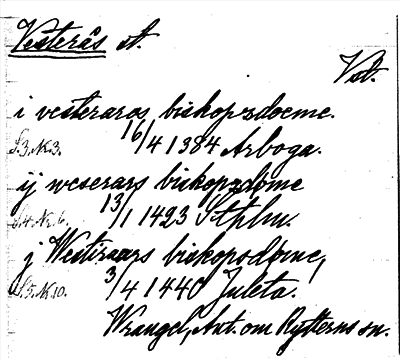 Vesterås st.
Vstl.
i vesteraras biskopzdoeme.
S.3. N. 3. 16/4 1384 Arboga.
ij weserars biskopzdøme
S.4. N. 6. 13/1 1423 Sthlm.
j Westiraars biskopsdøme,
S.5. N. 10. 3/4 1440 Juleta.
Wrangel, Ant. om Rytterns sn.